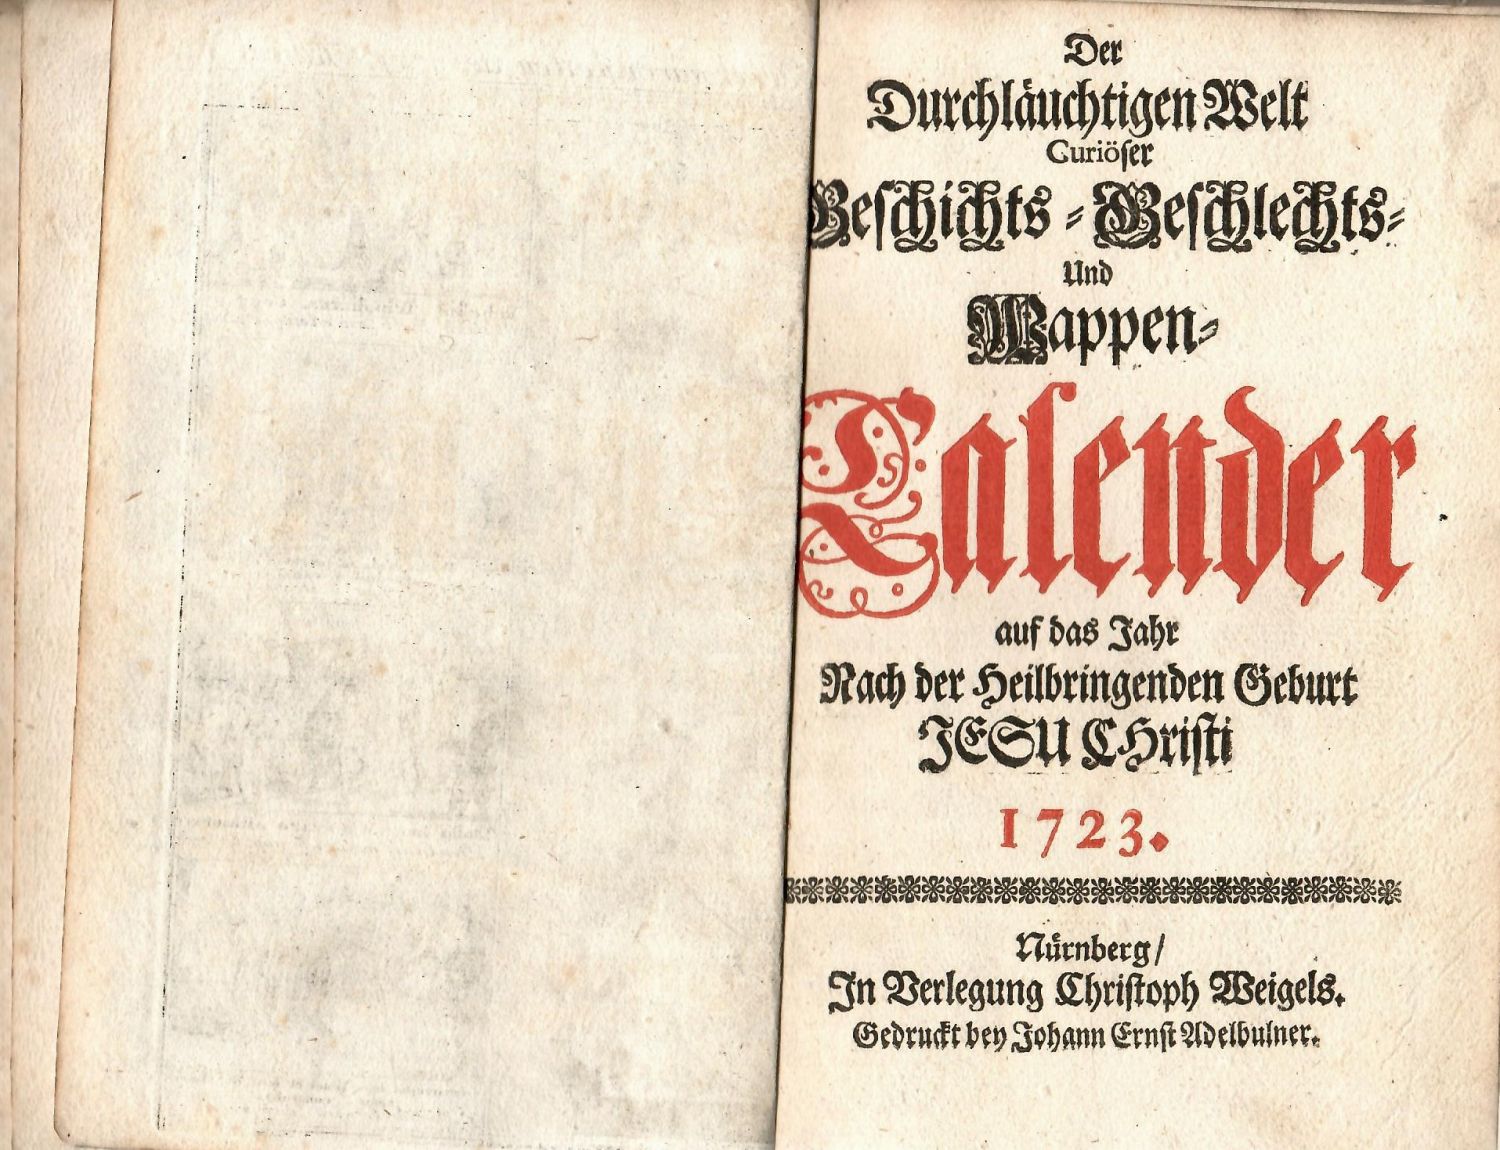 Der
Durchläuchtigen Welt
Curiöser
Geschichts-Geschlechts-
Und
Wappen-
Calender
auf das Jahr
Nach der Heilbringenden Geburt
JESU CHristi
1723.
Nürnberg/
In Verlegung Christoph Weigels.
Gedruckt bey Johann Ernst Adelbulner.